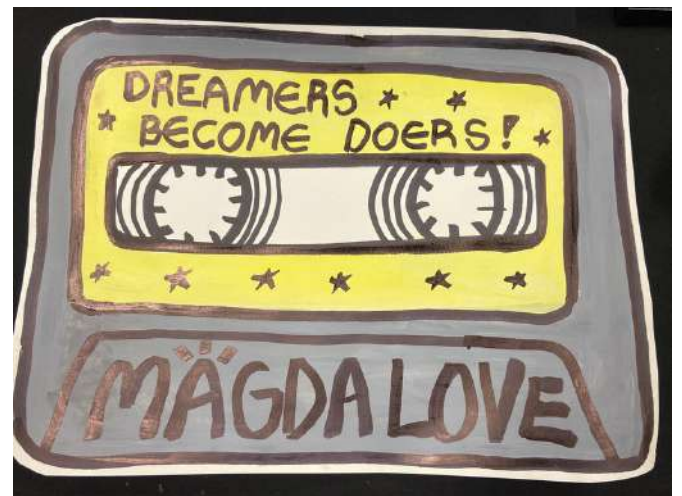 DREAMERS
BECOME DOERS!
MAGDA LOVE